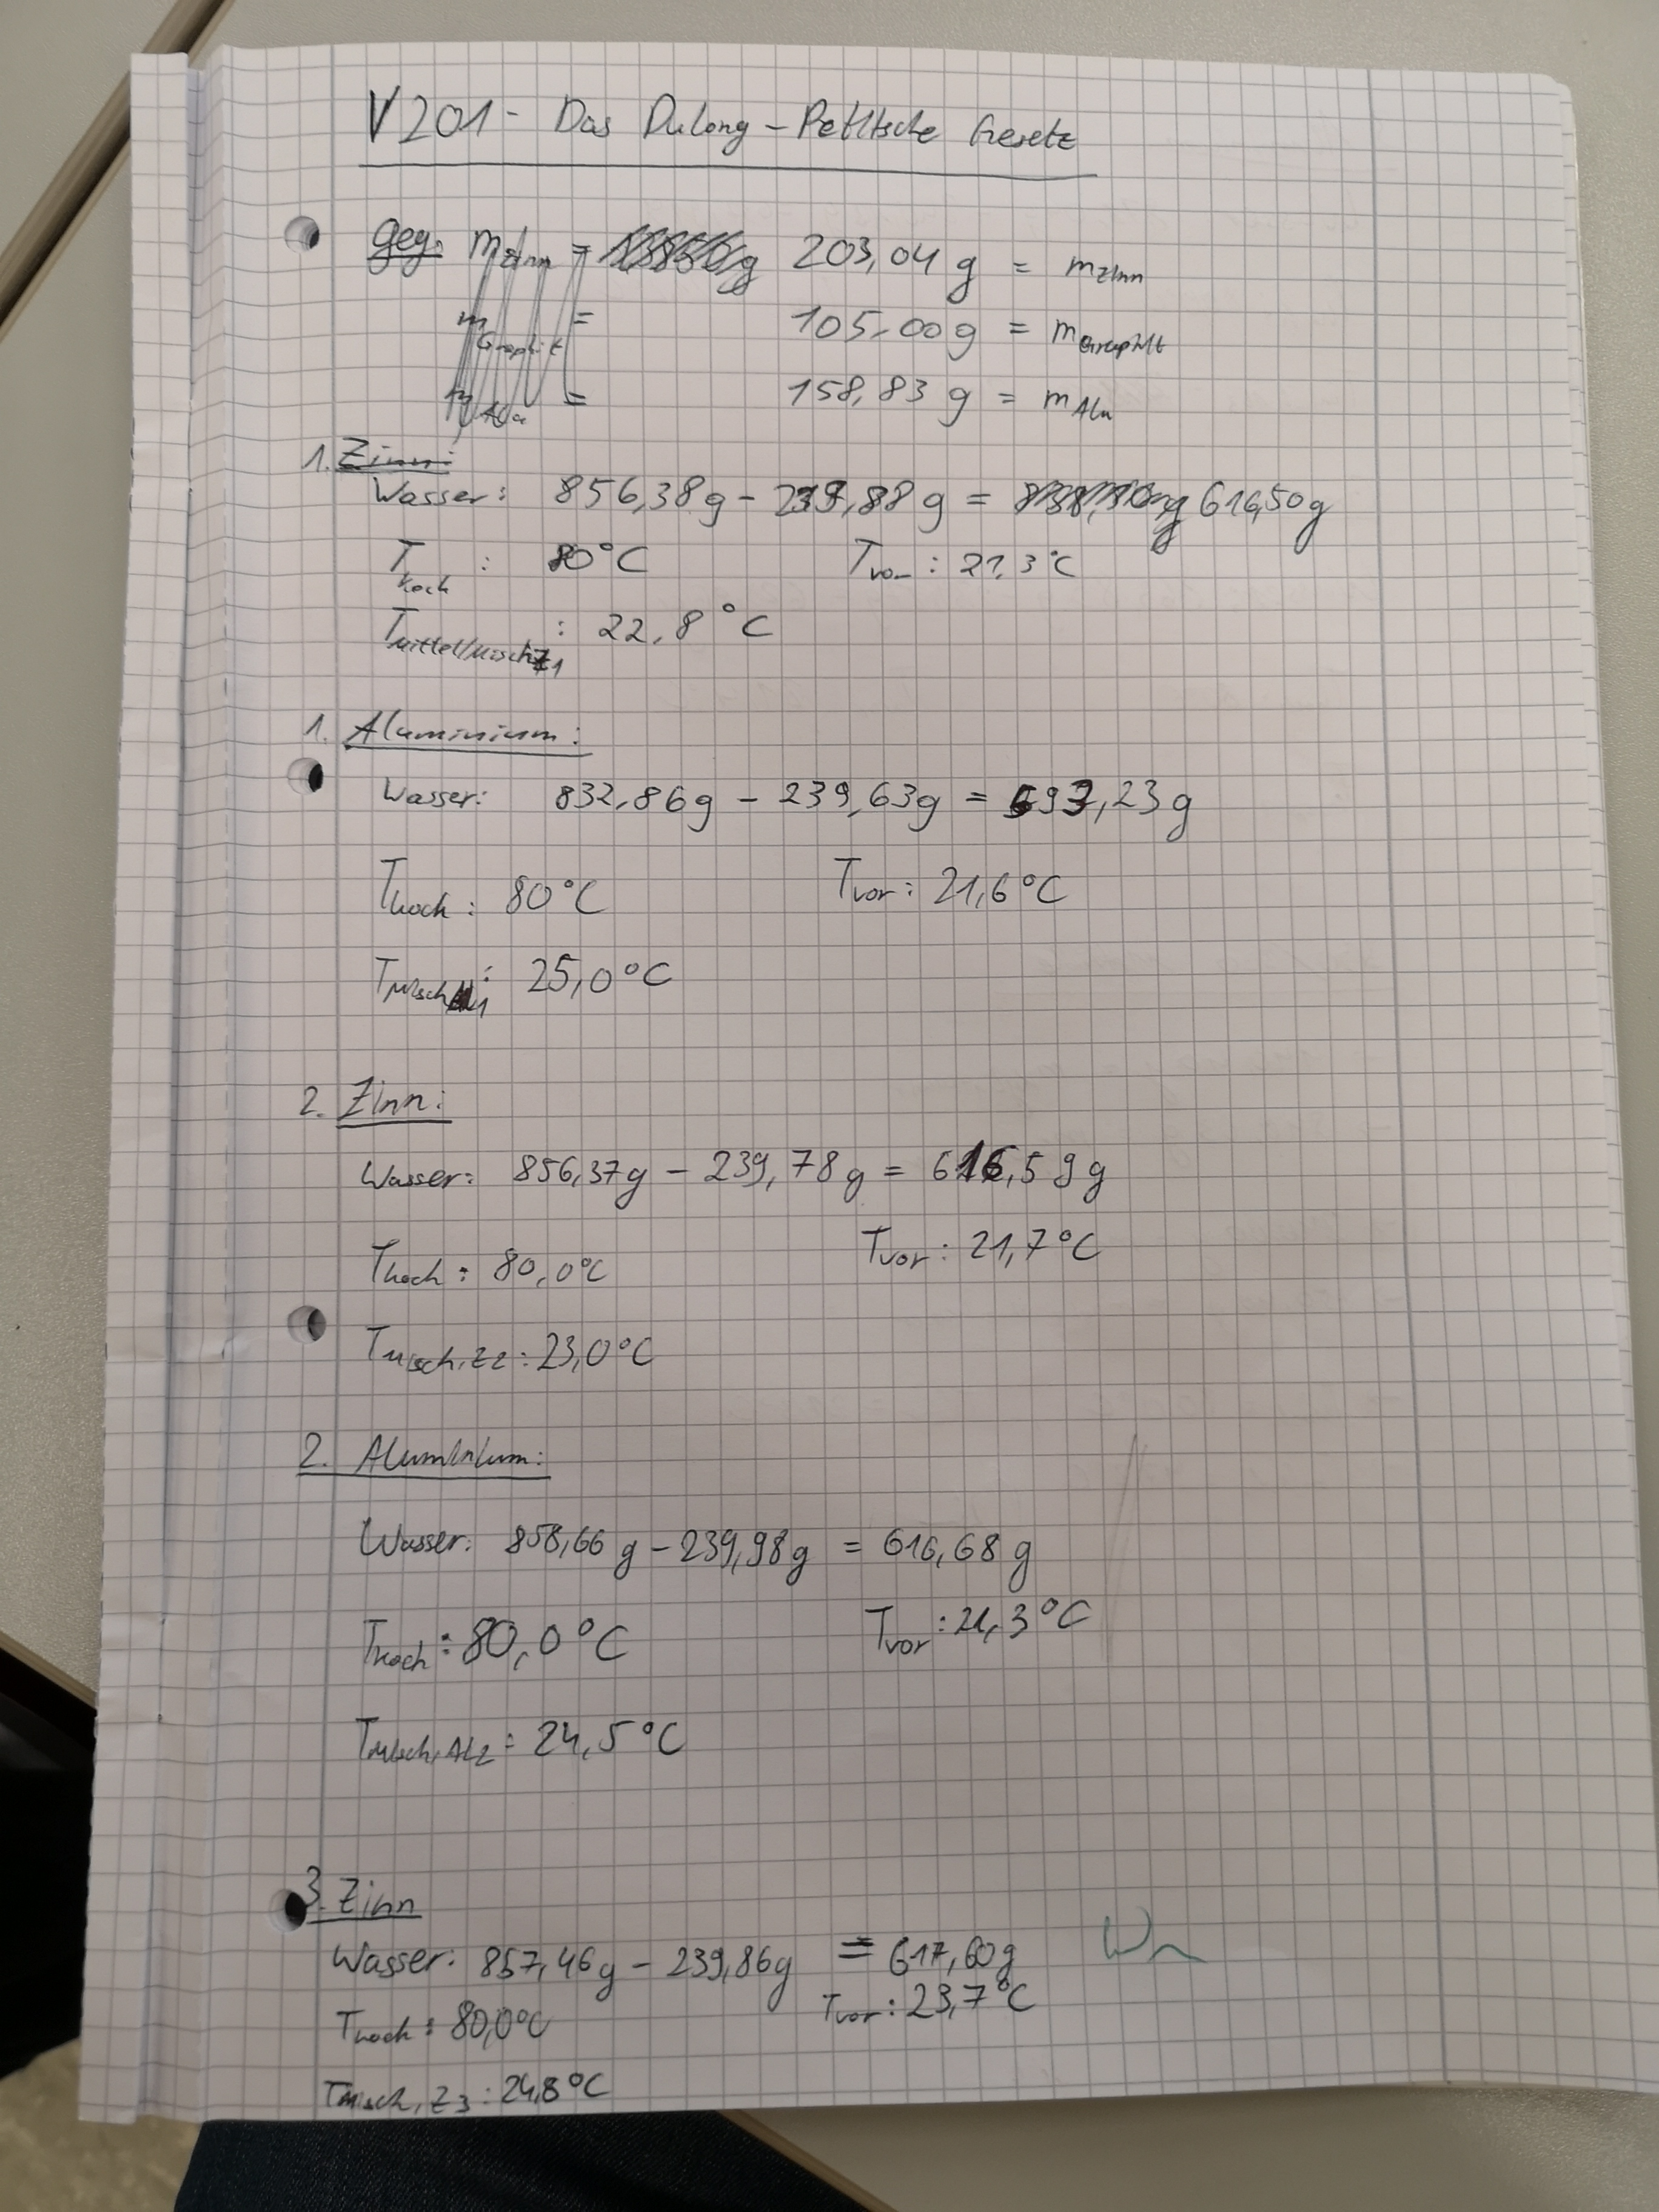 V201 - Das Dulong-Petitsche Gesetz
geg: m Zinn = 203,04 g = m Zinn
m Graphit = 105,00 g = m Graphit
m Alu = 158,83 g = m Alu
1. Zinn:
Wasser: 856,38 g - 239,88 g = 616,50 g
T hoch : 80 °C T vor : 21,3 °C
T Mittel/Misch Z1 : 22,8 °C
1. Aluminium:
Wasser: 832,86 g - 239,63 g = 593,23 g
T hoch : 80 °C T vor : 21,6 °C
T Misch Al1 : 25,0 °C
2. Zinn:
Wasser: 856,37 g - 239,78 g = 616,59 g
T hoch : 80,0 °C T vor : 21,7 °C
T Misch, Z2 : 23,0 °C
2. Aluminium:
Wasser: 858,66 g - 239,98 g = 616,68 g
T hoch : 80,0 °C T vor : 21,3 °C
T Misch, Al2 : 24,5 °C
3. Zinn
Wasser: 857,46 g - 239,86 g = 617,60 g
T hoch : 80,0 °C T vor : 23,7 °C
T Misch, Z3 : 24,8 °C